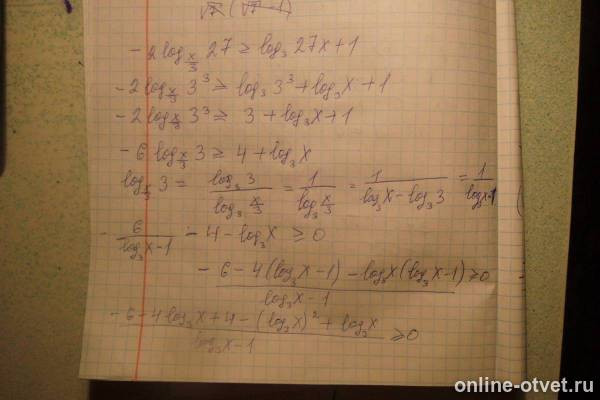 √7 (√7 - 1)
- 2 log_{x/3} 27 ≥ log₃ 27x + 1
- 2 log_{x/3} 3³ ≥ log₃ 3³ + log₃ x + 1
- 2 log_{x/3} 3³ ≥ 3 + log₃ x + 1
- 6 log_{x/3} 3 ≥ 4 + log₃ x
log_{x/3} 3 = log₃ 3 / log₃ x/3 = 1 / log₃ x/3 = 1 / (log₃ x - log₃ 3) = 1 / (log₃ x - 1)
- 6 / (log₃ x - 1) - 4 - log₃ x ≥ 0
(- 6 - 4 (log₃ x - 1) - log₃ x (log₃ x - 1)) / (log₃ x - 1) ≥ 0
(- 6 - 4 log₃ x + 4 - (log₃ x)² + log₃ x) / (log₃ x - 1) ≥ 0
online-otvet.ru